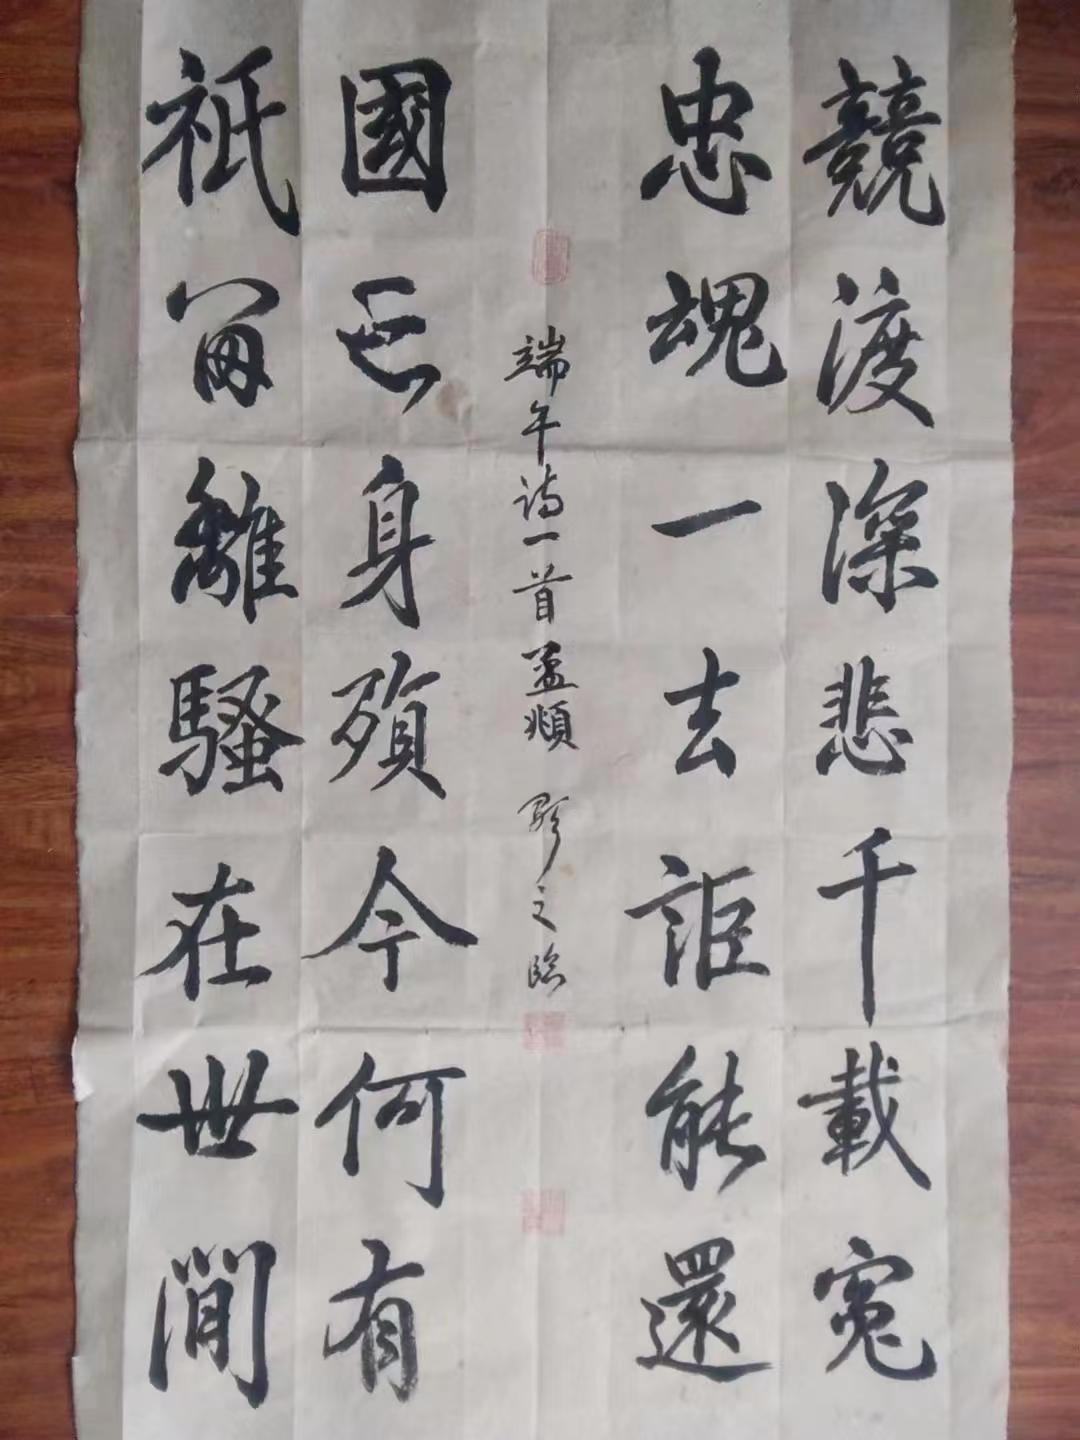 競渡深悲千載寃
忠魂一去詎能還
國亡身殞今何有
祇留離騷在世間
端午诗一首孟頫 之临